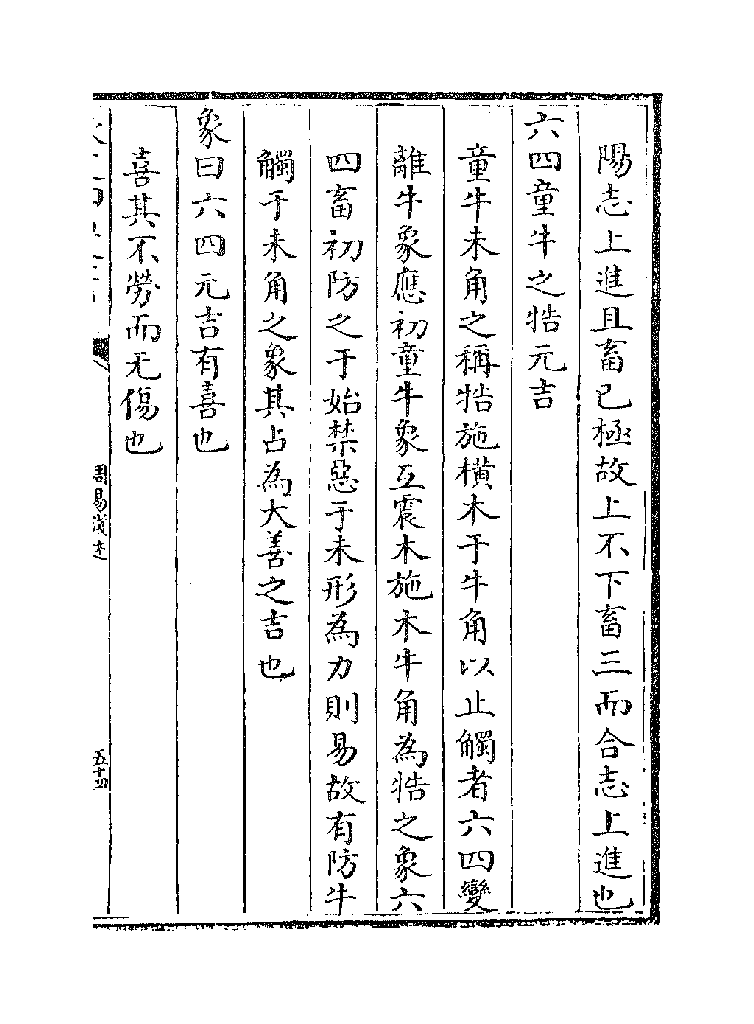 陽志上進且畜已極故上不下畜三而合志上進也
六四童牛之牿元吉
童牛未角之稱牿施橫木于牛角以止觸者六四變
離牛象應初童牛象互震木施木牛角為牿之象六
四畜初防之于始禁惡于未形為力則易故有防牛
觸于未角之象其占為大善之吉也
象曰六四元吉有喜也
喜其不勞而无傷也
周易演
五十四